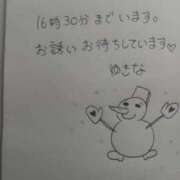 16時30分まています。
お誘いお待ちしています♡
ゆきな